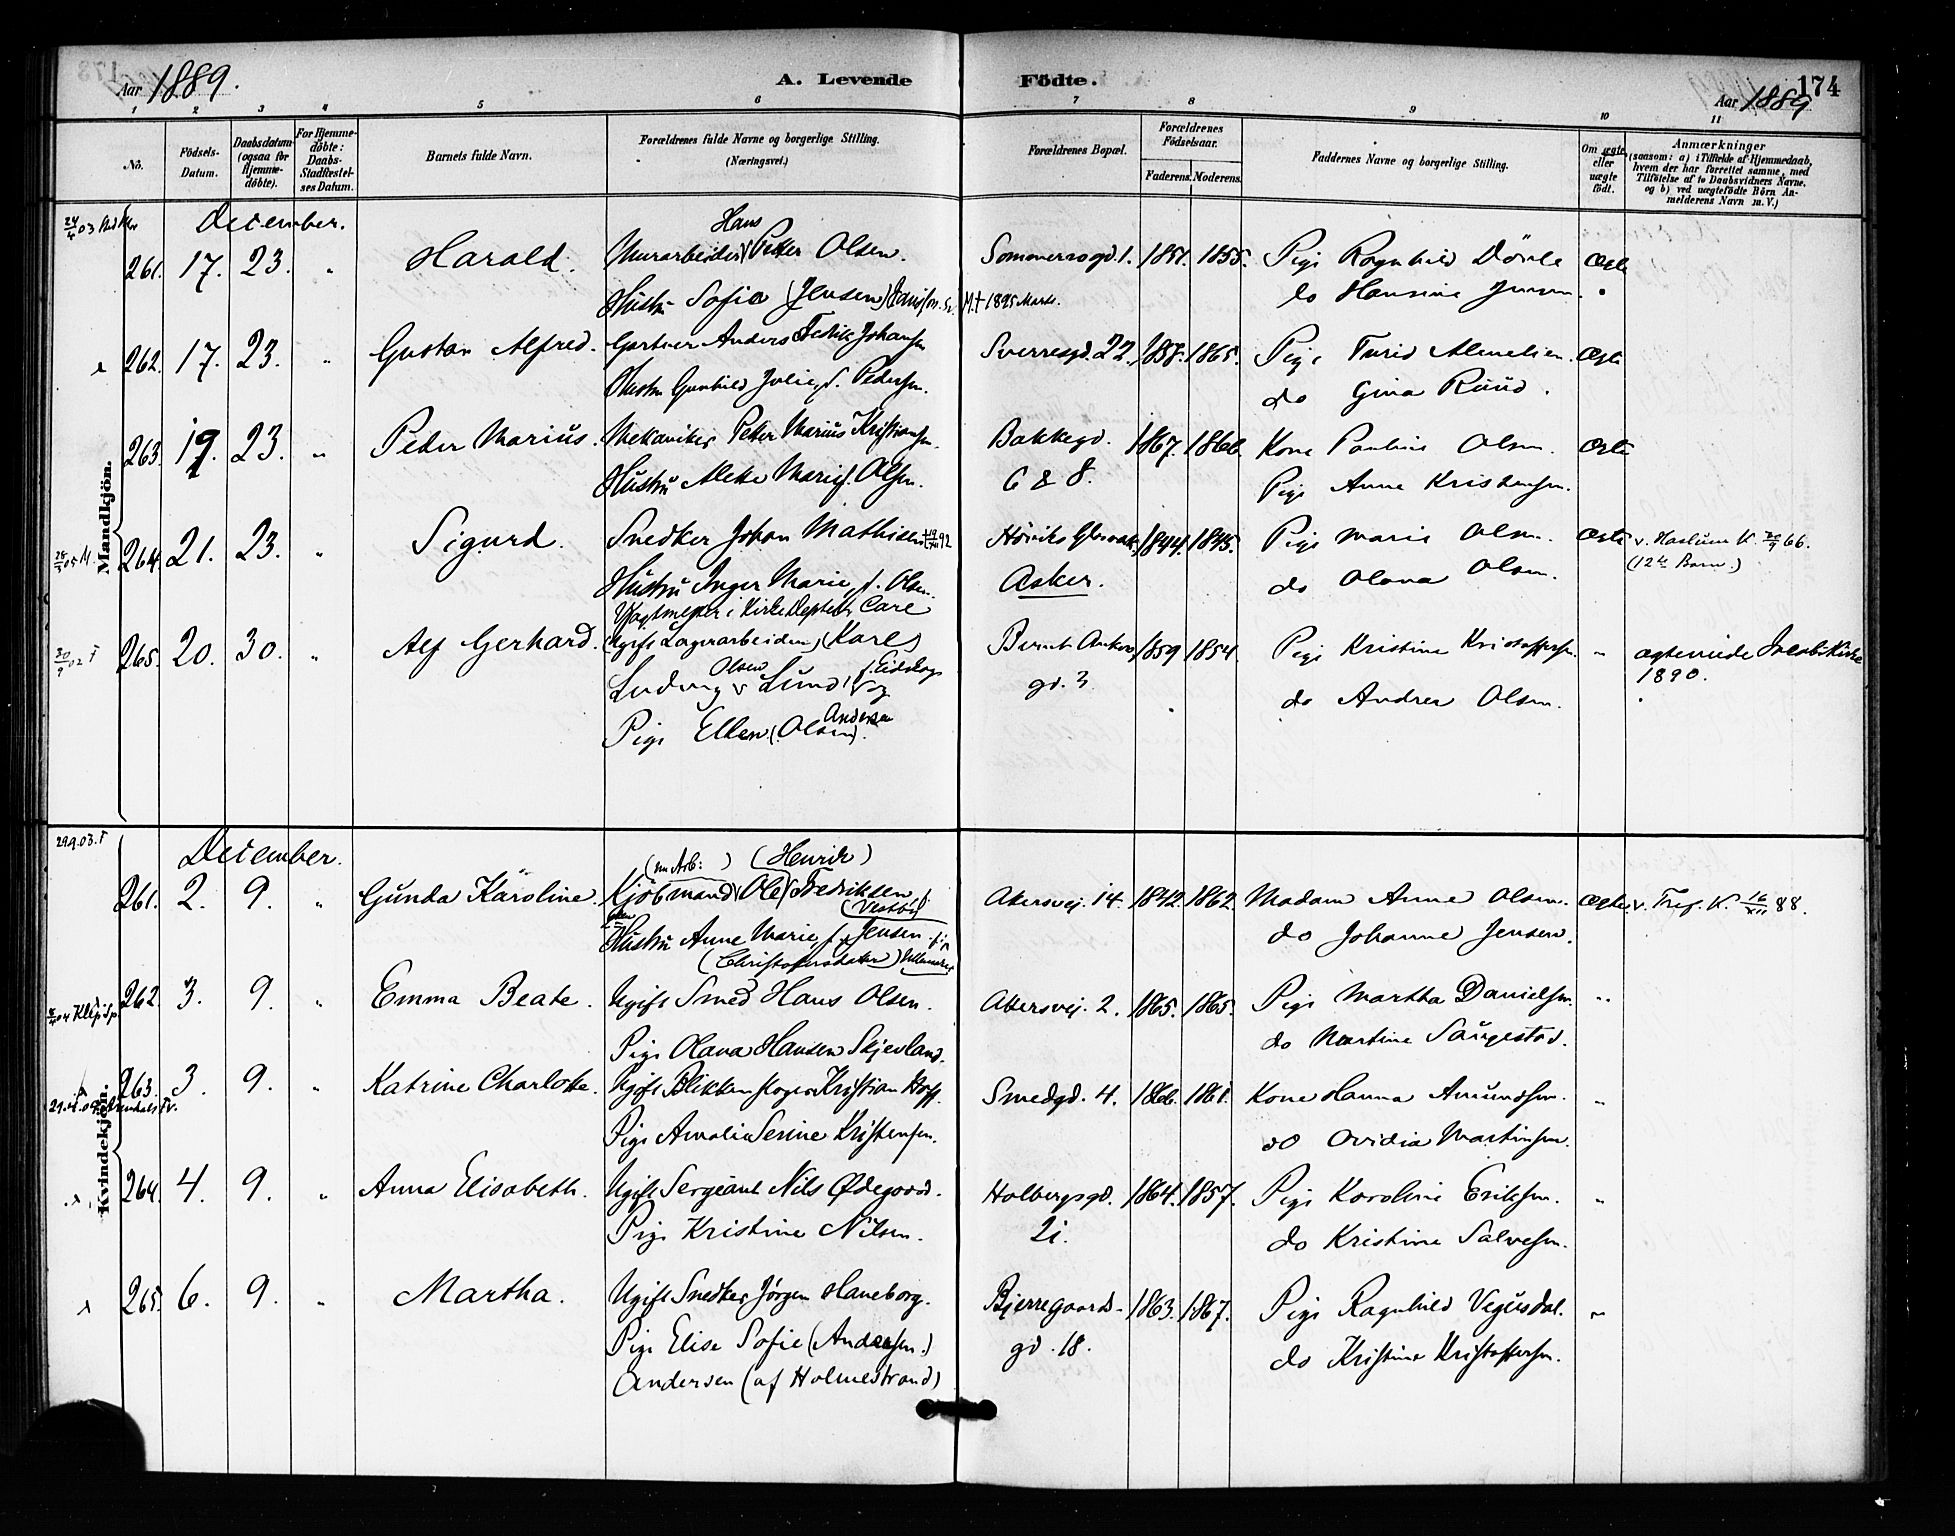 Aar 1889.
A. Levende Födte.
Aar 1889
174
1 2 3 4 5 6 7 8 9 10 11
No.
Födsels-Datum.
Daabsdatum (ogsaa for Hjemme-döbte).
For Hjemme-döbte: Daabs-Stadfæstel-ses Datum.
Barnets fulde Navn.
Forældrenes fulde Navne og borgerlige Stilling. (Næringsvei.)
Forældrenes Bopæl.
Forældrenes Födselsaar.
Faderens. Moderens.
Faddernes Navne og borgerlige Stilling.
Om ægte eller uægte födt.
Anmærkninger
(saasom: a) i Tilfælde af Hjemmedaab,
hvem der har forrettet samme, med
Tilföielse af to Daabsvidners Navne.
og b) ved uægtefödte Börn An-
melderens Navn m. V.)
Mandkjön.
December.
Hans
261. 17. 23. " Harald. Murarbeider Peter Olsen. Sommerrogd. 1. 1851. 1855. Pige Ragnhild Dövle Ægte
Hustru Sofie (Jensen) M. † 1895 Marts. do Hansine Jensen.
262. 17. 23. " Gustav Alfred. Gartner Anders Fredrik Johansen Sverresgd. 22. 1858. 1865. Pige Turid Ægte
Hustru Gunhild Julie f. Pedersen. do Gina Ruud.
263. 19. 23. " Peder Marius. Mekaniker Peter Marius Kristiansen Bakkegd. 1867. 1866. Kone Pauline Olsen. Ægte
Hustru Mette Marie f. Olsen. 6 & 8. Pige Anne Kristensen.
264. 21. 23. " Sigurd. Snedker Johan Mathisen Høviks Glasværk 1844. 1845. Pige Marie Olsen. Ægte v. Haslum K. 30/9 66.
Hustru Inger Marie, f. Olsen. Asker. do Olava Olsen. (12te Barn.)
Care
265. 20. 30. " Alf Gerhard. Ugift Lagerarbeider (Karl) Bernt Ankers 1859 1854. Pige Kristine Kristoffersen. " ægteviede Jacobs Kirke
Olsen
Ludvig Lund og gd. 3 1890.
Andersen
Pige Ellen (Olsen). do Andrea Olsen.
29.9.03. F
Kvindekjön.
December.
(Henrik)
261. 2. 9. " Gunda Karoline. Kjöbmand (Ole) Fredriksen Akersvej. 14. 1842. 1862. Madam Anne Olsen. Ægte. v. Tref. K. 16/XII 88.
(Vestby)
Hustru Anne Marie f. Jensen do Johanne Jensen.
(Christofersdatter)
262. 3. 9. " Emma Beate. Ugift Smed Hans Olsen. Akersvej. 2. 1865. 1865. Pige Martha Danielsen. "
Pige Olava Hansen Skjevland. do Martine Saugestad.
263. 3. 9. " Katrine Charlotte. Ugift Blikkenslager Kristian Hoff. Smedgd. 4. 1866. 1861. Kone Hanna Amundsen. "
Pige Amalie Serine Kristensen. do Ovidia Martinsen.
264. 4. 9. " Anna Elisabeth. Ugift Sergeant Nils Ødegaard. Holbergsgd. 1864. 1857. Pige Karoline Eriksen. "
Pige Kristine Nilsen. 21. do Kristine Salvesen.
265. 6. 9. " Martha. Ugift Snedker Jørgen Haneborg. Bjerregaards- 1863. 1867. Pige Ragnhild Vegusdal. "
Pige Elise Sofie (Andersen.) gd. 18. do Kristine Kristoffersen.
Andersen (af Holmestrand)